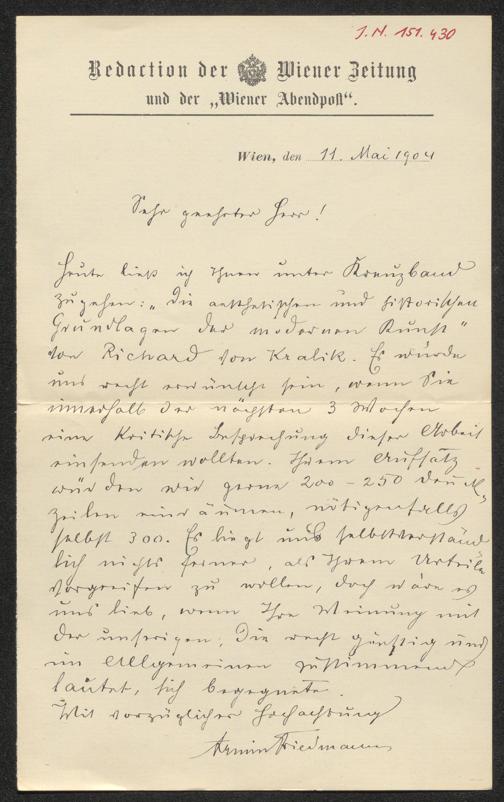 J.N. 151.430
Redaction der Wiener Zeitung
und der „Wiener Abendpost“.
Wien, den 11. Mai 1904
Sehr geehrter Herr!
Heute ließ ich Ihnen unter Kreuzband
zugehen: „Die aesthetischen und historischen
Grundlagen der modernen Kunst“
von Richard von Kralik. Es würde
uns recht erwünscht sein, wenn Sie
innerhalb der nächsten 3 Wochen
eine kritische Besprechung dieser Arbeit
einsenden wollten. Ihrem Aufsatz
würden wir gerne 200 – 250
zeilen einräumen, nötigenfalls
selbst 300. Es liegt uns selbstverständ
lich nichts ferner, als Ihrem Urteile
vorgreifen zu wollen, doch wäre es
uns lieb, wenn Ihre Meinung mit
der unserigen, die recht günstig und
im Allgemeinen zustimmend
lautet, sich begegnete.
Mit vorzüglicher Hochachtung
Armin Friedmann